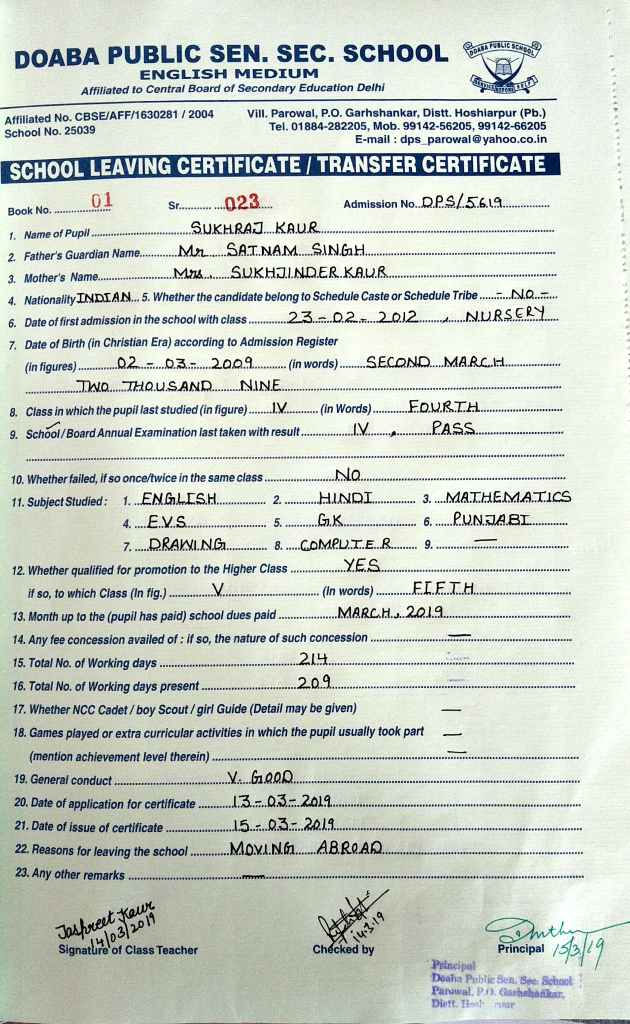 DOABA PUBLIC SEN. SEC. SCHOOL
ENGLISH MEDIUM
Affiliated to Central Board of Secondary Education Delhi
DOABA PUBLIC SCHOOL
Affiliated No. CBSE/AFF/1630281 / 2004
School No. 25039
Vill. Parowal, P.O. Garhshankar, Distt. Hoshiarpur (Pb.)
Tel. 01884-282205, Mob. 99142-56205, 99142-66205
E-mail : dps_parowal@yahoo.co.in
SCHOOL LEAVING CERTIFICATE / TRANSFER CERTIFICATE
Book No. 01 Sr. 023 Admission No. DPS/5619
1. Name of Pupil SUKHRAJ KAUR
2. Father's Guardian Name Mr SATNAM SINGH
3. Mother's Name Mrs. SUKHJINDER KAUR
4. Nationality INDIAN 5. Whether the candidate belong to Schedule Caste or Schedule Tribe - NO -
6. Date of first admission in the school with class 23-02-2012, NURSERY
7. Date of Birth (in Christian Era) according to Admission Register
(in figures) 02-03-2009 (in words) SECOND MARCH
TWO THOUSAND NINE
8. Class in which the pupil last studied (in figure) IV (in Words) FOURTH
9. School / Board Annual Examination last taken with result IV, PASS
10. Whether failed, if so once/twice in the same class NO
11. Subject Studied : 1. ENGLISH 2. HINDI 3. MATHEMATICS
4. E.V.S 5. G.K 6. PUNJABI
7. DRAWING 8. COMPUTER 9. —
12. Whether qualified for promotion to the Higher Class YES
if so, to which Class (In fig.) V (In words) FIFTH
13. Month up to the (pupil has paid) school dues paid MARCH, 2019
14. Any fee concession availed of : if so, the nature of such concession —
15. Total No. of Working days 214
16. Total No. of Working days present 209
17. Whether NCC Cadet / boy Scout / girl Guide (Detail may be given) —
18. Games played or extra curricular activities in which the pupil usually took part —
(mention achievement level therein) —
19. General conduct V. GOOD
20. Date of application for certificate 13-03-2019
21. Date of issue of certificate 15-03-2019
22. Reasons for leaving the school MOVING ABROAD
23. Any other remarks —
Jaspreet Kaur
14/03/2019 14.3.19 15/3/19
Signature of Class Teacher Checked by Principal
Principal
Doaba Public Sen. Sec. School
Parowal, P.O. Garhshankar,
Distt.